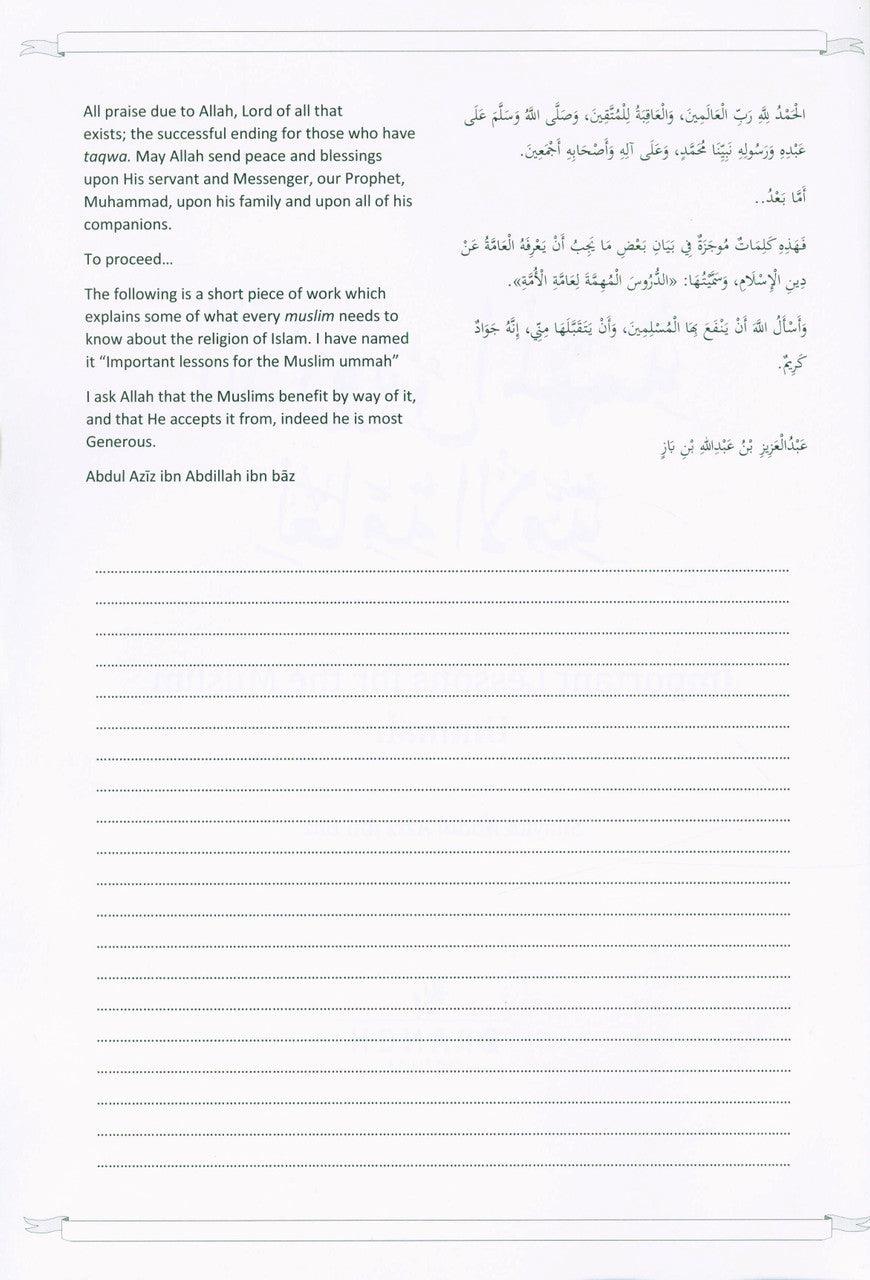 All praise due to Allah, Lord of all that
exists; the successful ending for those who have
taqwa. May Allah send peace and blessings
upon His servant and Messenger, our Prophet,
Muhammad, upon his family and upon all of his
companions.
To proceed…
The following is a short piece of work which
explains some of what every muslim needs to
know about the religion of Islam. I have named
it “Important lessons for the Muslim ummah”
I ask Allah that the Muslims benefit by way of it,
and that He accepts it from, indeed he is most
Generous.
Abdul Azīz ibn Abdillah ibn bāz
الْحَمْدُ لِلَّهِ رَبِّ الْعَالَمِينَ، وَالْعَاقِبَةُ لِلْمُتَّقِينَ، وَصَلَّى اللَّهُ وَسَلَّمَ عَلَى
عَبْدِهِ وَرَسُولِهِ نَبِيِّنَا مُحَمَّدٍ، وَعَلَى آلِهِ وَأَصْحَابِهِ أَجْمَعِينَ.
أَمَّا بَعْدُ..
فَهَذِهِ كَلِمَاتٌ مُوجَزَةٌ فِي بَيَانِ بَعْضِ مَا يَجِبُ أَنْ يَعْرِفَهُ الْعَامَّةُ عَنْ
دِينِ الْإِسْلَامِ، وَسَمَّيْتُهَا: «الدُّرُوسَ الْمُهِمَّةَ لِعَامَّةِ الْأُمَّةِ».
وَأَسْأَلُ اللَّهَ أَنْ يَنْفَعَ بِهَا الْمُسْلِمِينَ، وَأَنْ يَتَقَبَّلَهَا مِنِّي، إِنَّهُ جَوَادٌ
كَرِيمٌ.
عَبْدُالْعَزِيزِ بْنُ عَبْدِاللهِ بْنِ بَازٍ